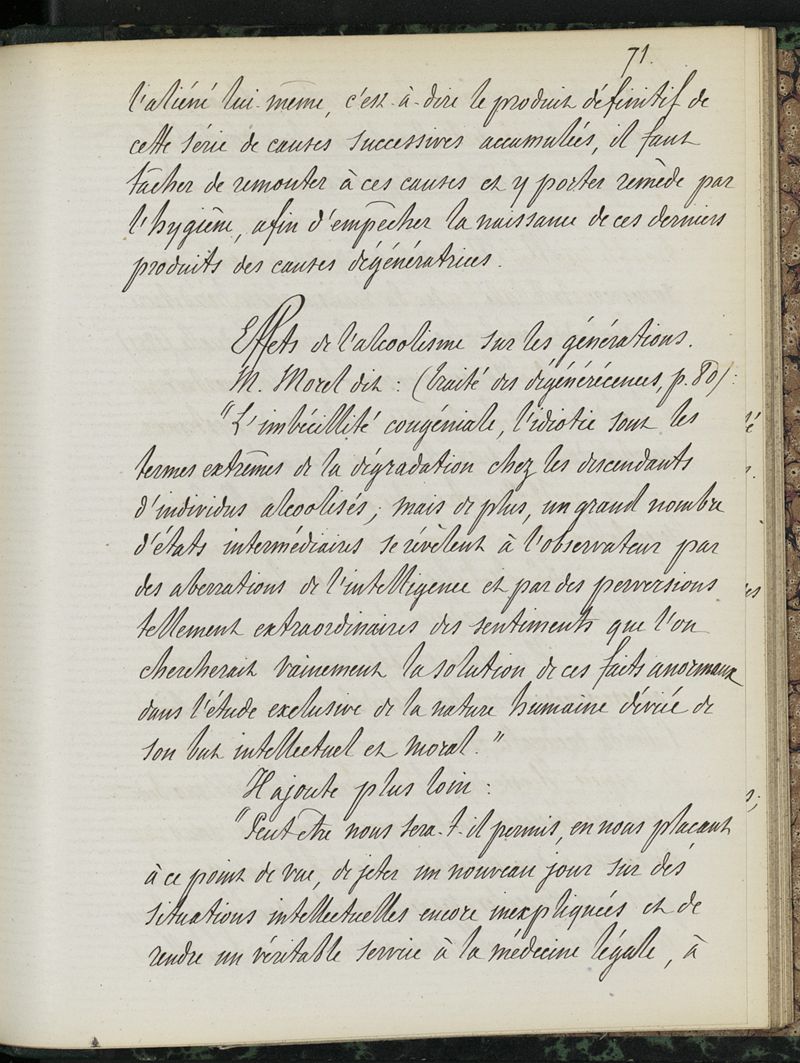 71.
l'aliéné lui-même, c'est-à-dire le produit définitif de
cette série de causes successives accumulées, il faut
tâcher de remonter à ces causes et y porter remède par
l'hygiène, afin d'empêcher la naissance de ces derniers
produits des causes dégénératrices.
Effets de l'alcoolisme sur les générations.
M. Morel dit : (traité des dégénérécences, p. 80) :
"L'imbécillité congéniale, l'idiotie sont les
termes extrêmes de la dégradation chez les descendants
d'individus alcoolisés ; mais de plus, un grand nombre
d'états intermédiaires se révèlent à l'observateur par
des aberrations de l'intelligence et par des perversions
tellement extraordinaires des sentiments que l'on
chercherait vainement la solution de ces faits anormaux
dans l'étude exclusive de la nature humaine déviée de
son but intellectuel et moral."
Il ajoute plus loin :
"Peut-être nous sera-t-il permis, en nous plaçant
à ce point de vue, de jeter un nouveau jour sur des
situations intellectuelles encore inexpliquées et de
rendre un véritable service à la médecine légale, à